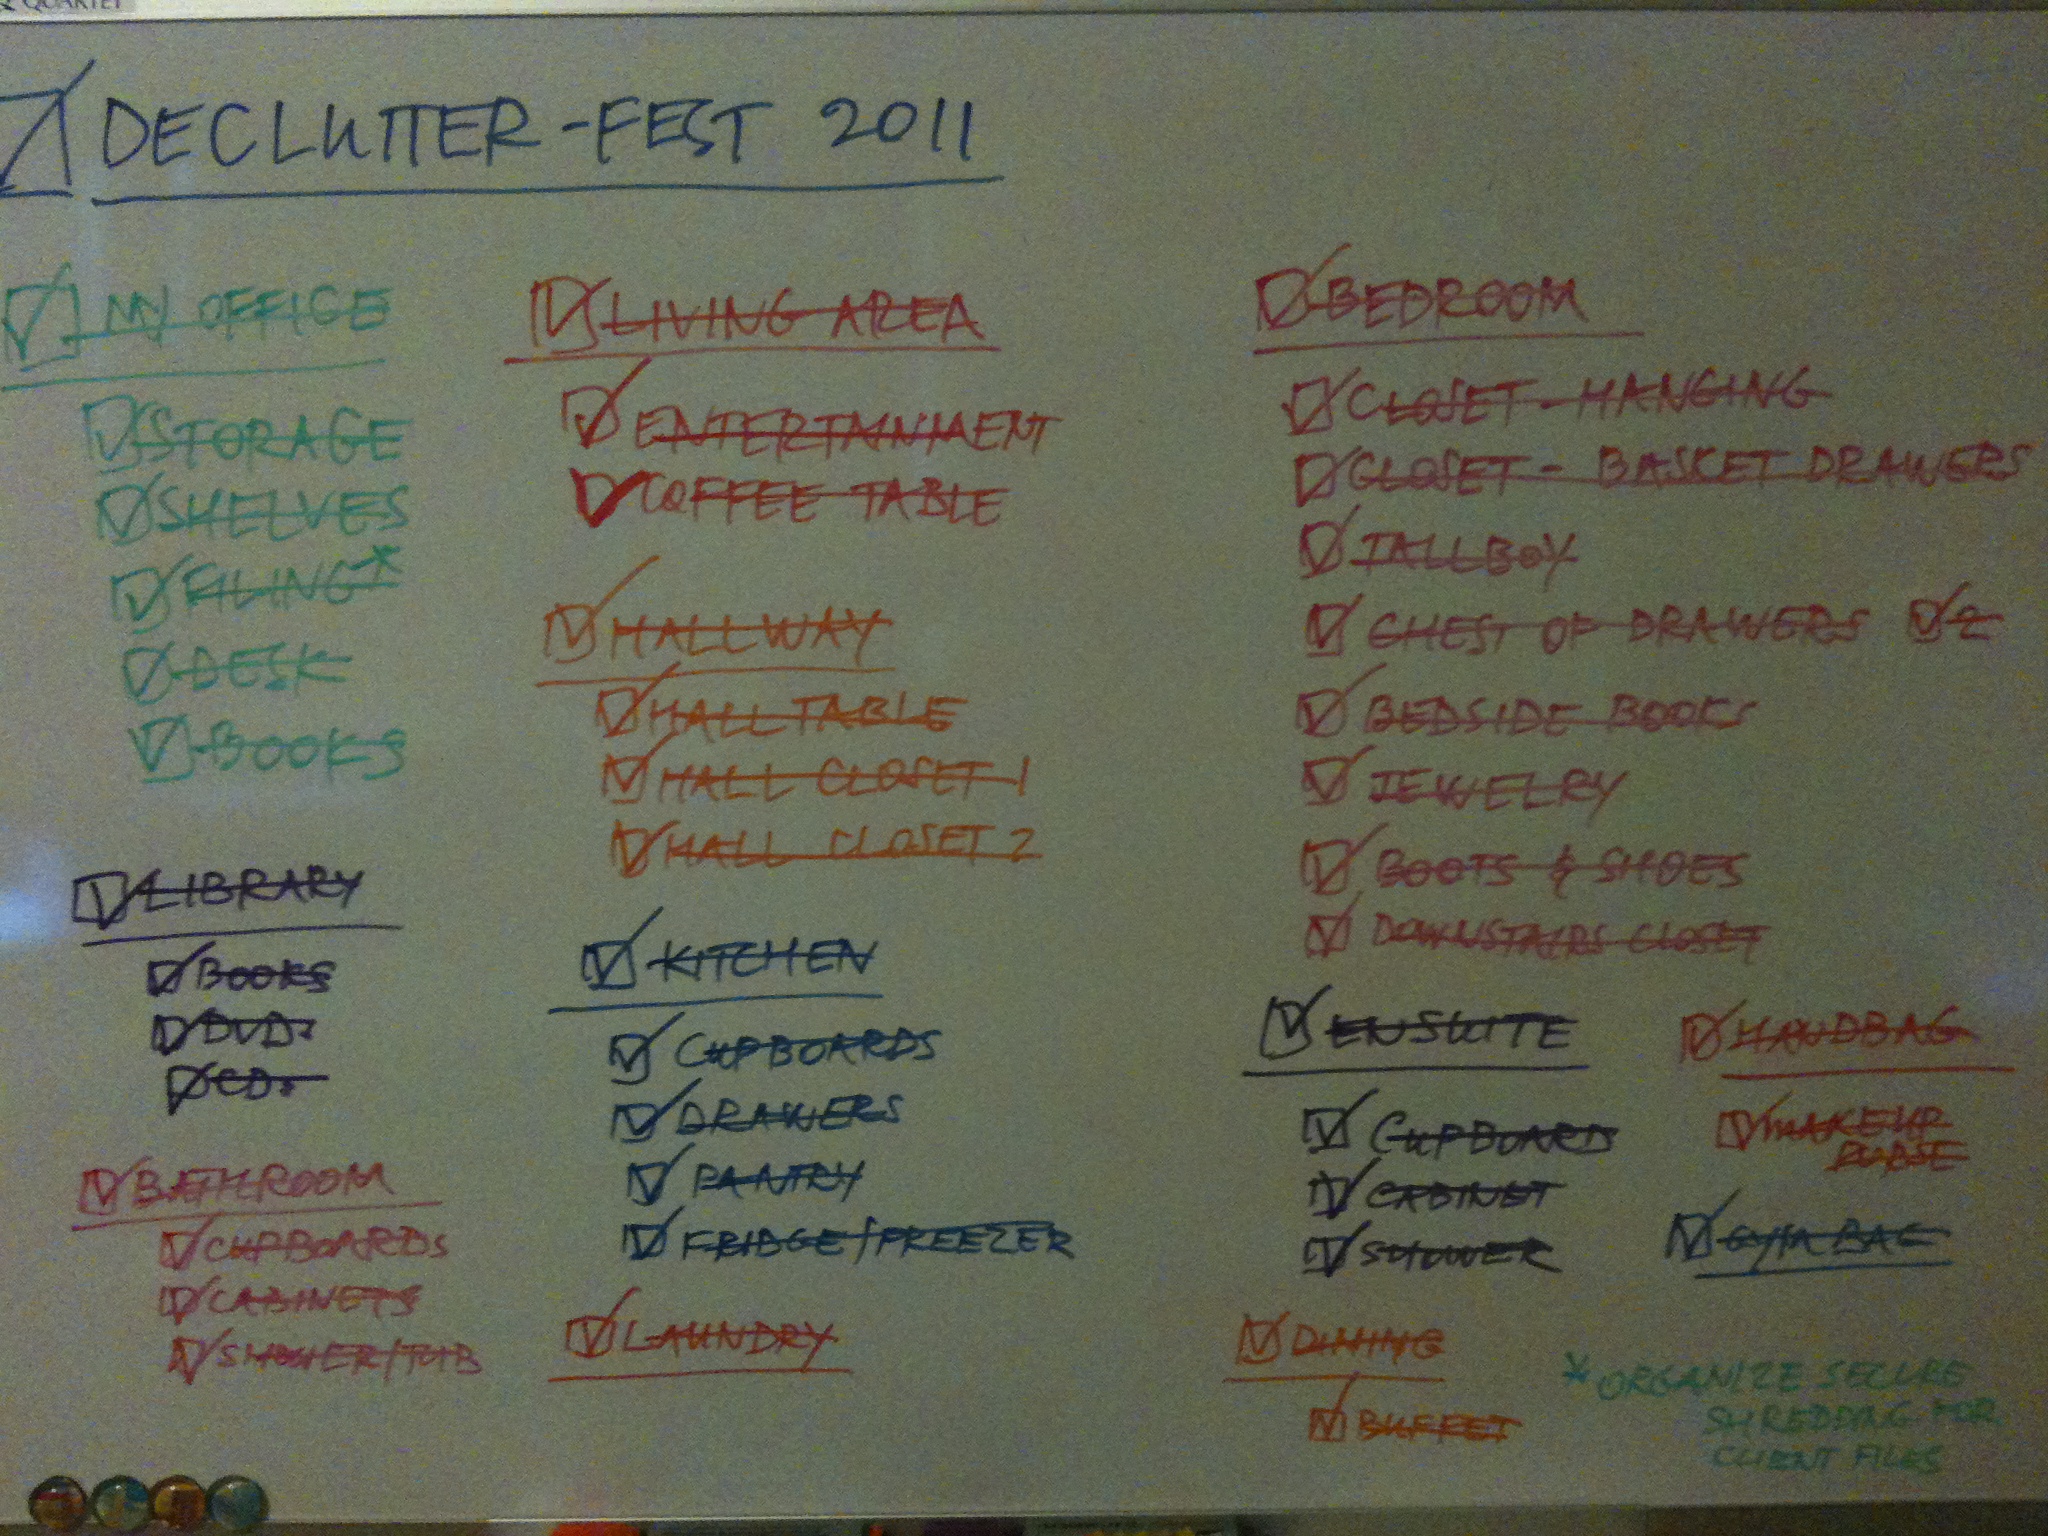 QUARTET
DECLUTTER-FEST 2011
MY OFFICE
STORAGE
SHELVES
FILING*
DESK
BOOKS
LIBRARY
BOOKS
DVDs
CDs
BATHROOM
CUPBOARDS
CABINETS
SHOWER/TUB
LIVING AREA
ENTERTAINMENT
COFFEE TABLE
HALLWAY
HALL TABLE
HALL CLOSET 1
HALL CLOSET 2
KITCHEN
CUPBOARDS
DRAWERS
PANTRY
FRIDGE/FREEZER
LAUNDRY
BEDROOM
CLOSET - HANGING
CLOSET - BASKET DRAWERS
TALLBOY
CHEST OF DRAWERS 2
BEDSIDE BOOKS
JEWELRY
BOOTS & SHOES
DOWNSTAIRS CLOSET
ENSUITE
CUPBOARD
CABINET
SHOWER
HANDBAG
MAKEUP
PURSE
GYM BAG
DINING
BUFFET
* ORGANIZE SECURE
SHREDDING FOR
CLIENT FILES